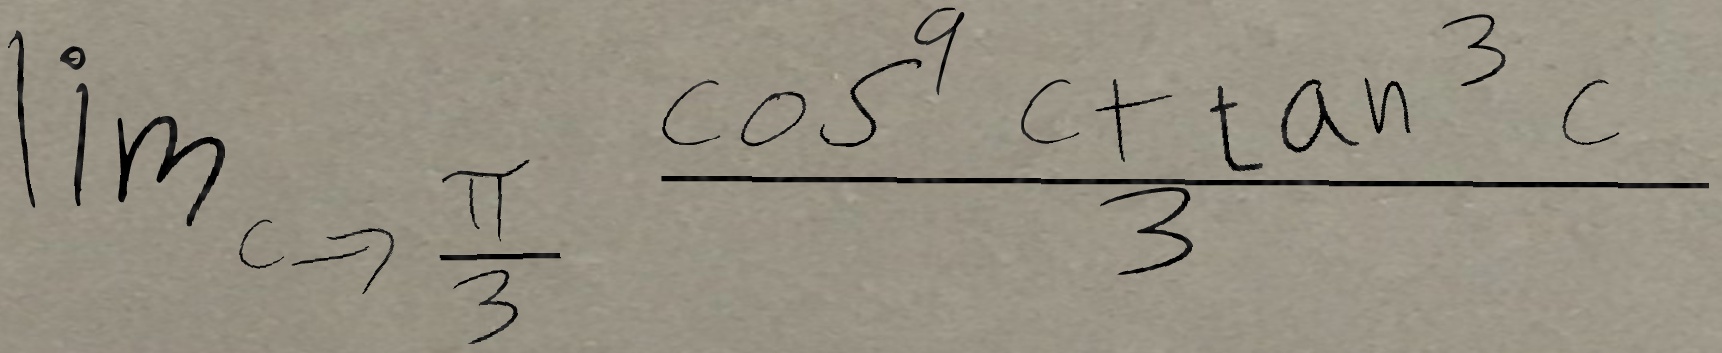 lim_{c→\frac{π}{3}} \frac{cos^9 c + tan^3 c}{3}